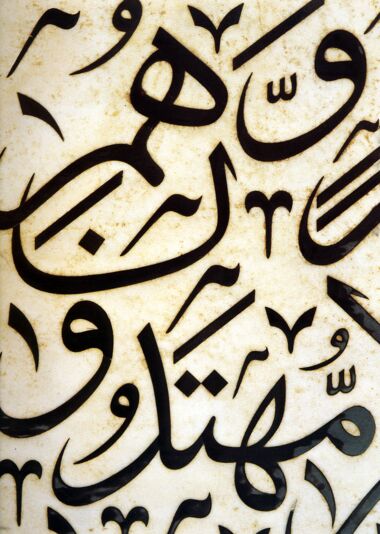 وَّهُم
مُّهْتَدُونَ